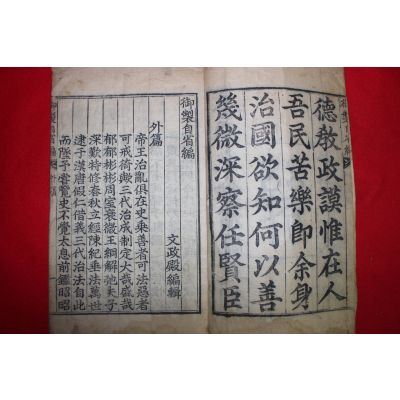 德教政謨惟在人
吾民苦樂即余身
治國欲知何以善
幾微深察任賢臣
御製自省編
外篇
文政殿編輯
帝王治亂俱在史乘善者可法惡者
可戒猗歟三代治成制定大哉盛哉
郁郁彬彬周室衰微王綱解弛夫子
深歎特修春秋立經陳紀垂法萬世
逮于漢唐假仁借義三代治法自此
而墜予嘗覽史不覺太息前鑑昭昭